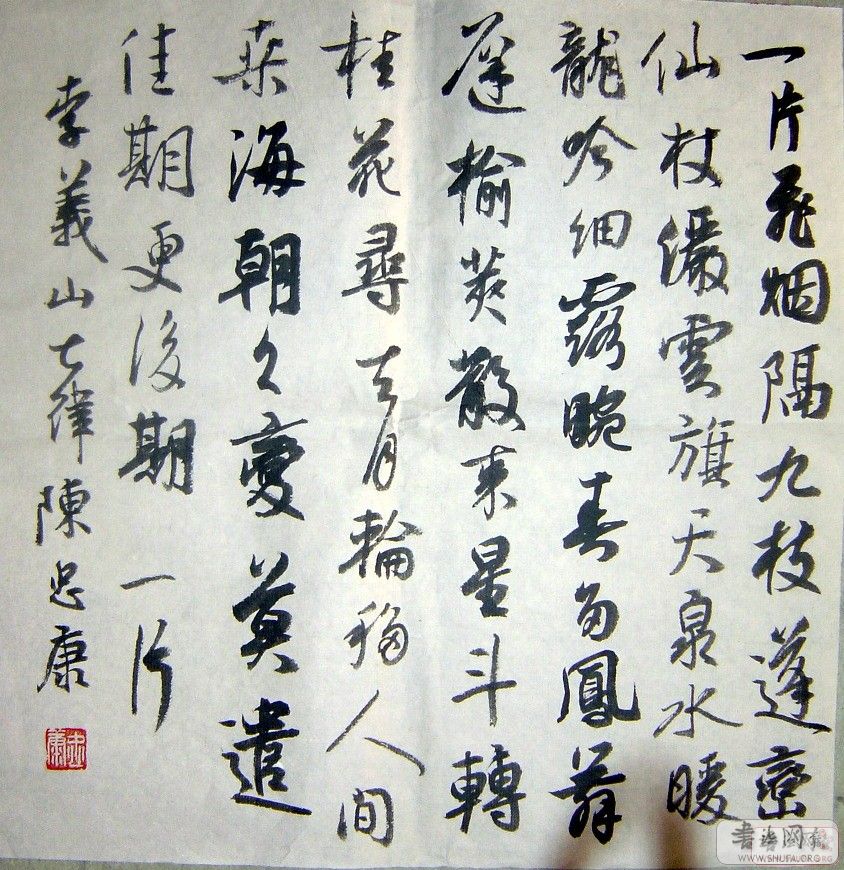 一片飛烟隔九枝蓬巒
仙杖儼雲旗天泉水暖
龍吟細露畹春多鳳舞
遲榆莢散來星斗轉
桂花尋去月輪移人間
桑海朝々變莫遣
佳期更後期 一片
李義山七律陳忠康
忠康